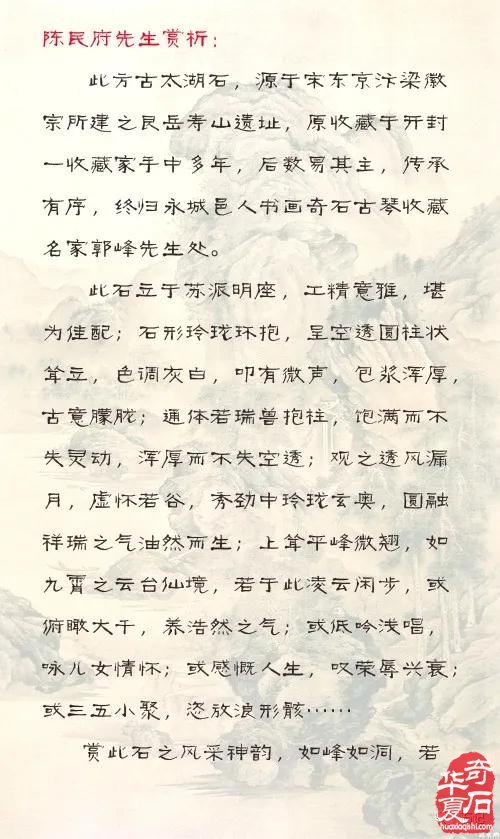 陈民府先生赏析：
此方古太湖石，源于宋东京汴梁徽
宗所建之艮岳寿山遗址，原收藏于开封
一收藏家手中多年，后数易其主，传承
有序，终归永城邑人书画奇石古琴收藏
名家郭峰先生处。
此石立于苏派明座，工精意雅，堪
为佳配；石形玲珑环抱，呈空透圆柱状
耸立，色调灰白，叩有微声，包浆浑厚，
古意朦胧；通体若瑞兽抱柱，饱满而不
失灵动，浑厚而不失空透；观之透风漏
月，虚怀若谷，秀劲中玲珑玄奥，圆融
祥瑞之气油然而生；上耸平峰微翘，如
九霄之云台仙境，若于此凌云闲步，或
俯瞰大千，养浩然之气；或低吟浅唱，
咏儿女情怀；或感慨人生，叹荣辱兴衰；
或三五小聚，恣放浪形骸……
赏此石之风采神韵，如峰如洞，若
华夏奇石
huaxiaqishi.com